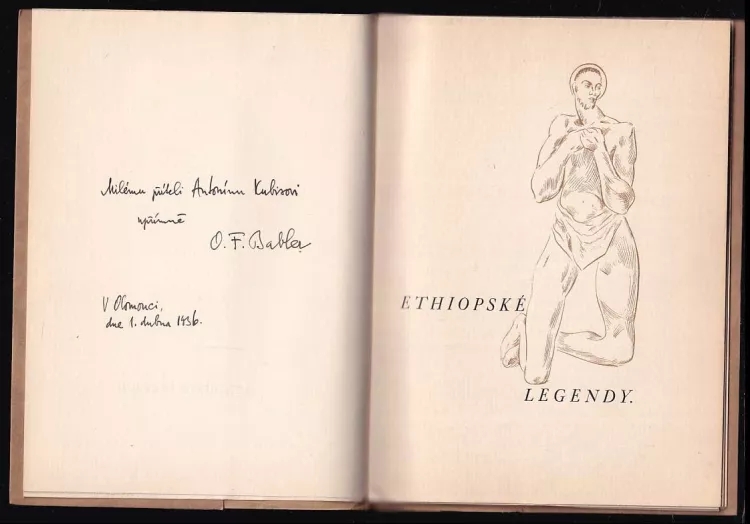 Milému příteli Antonínu Kubisovi
upřímně
O. F. Babler
V Olomouci,
dne 1. dubna 1936.
ETHIOPSKÉ
LEGENDY.